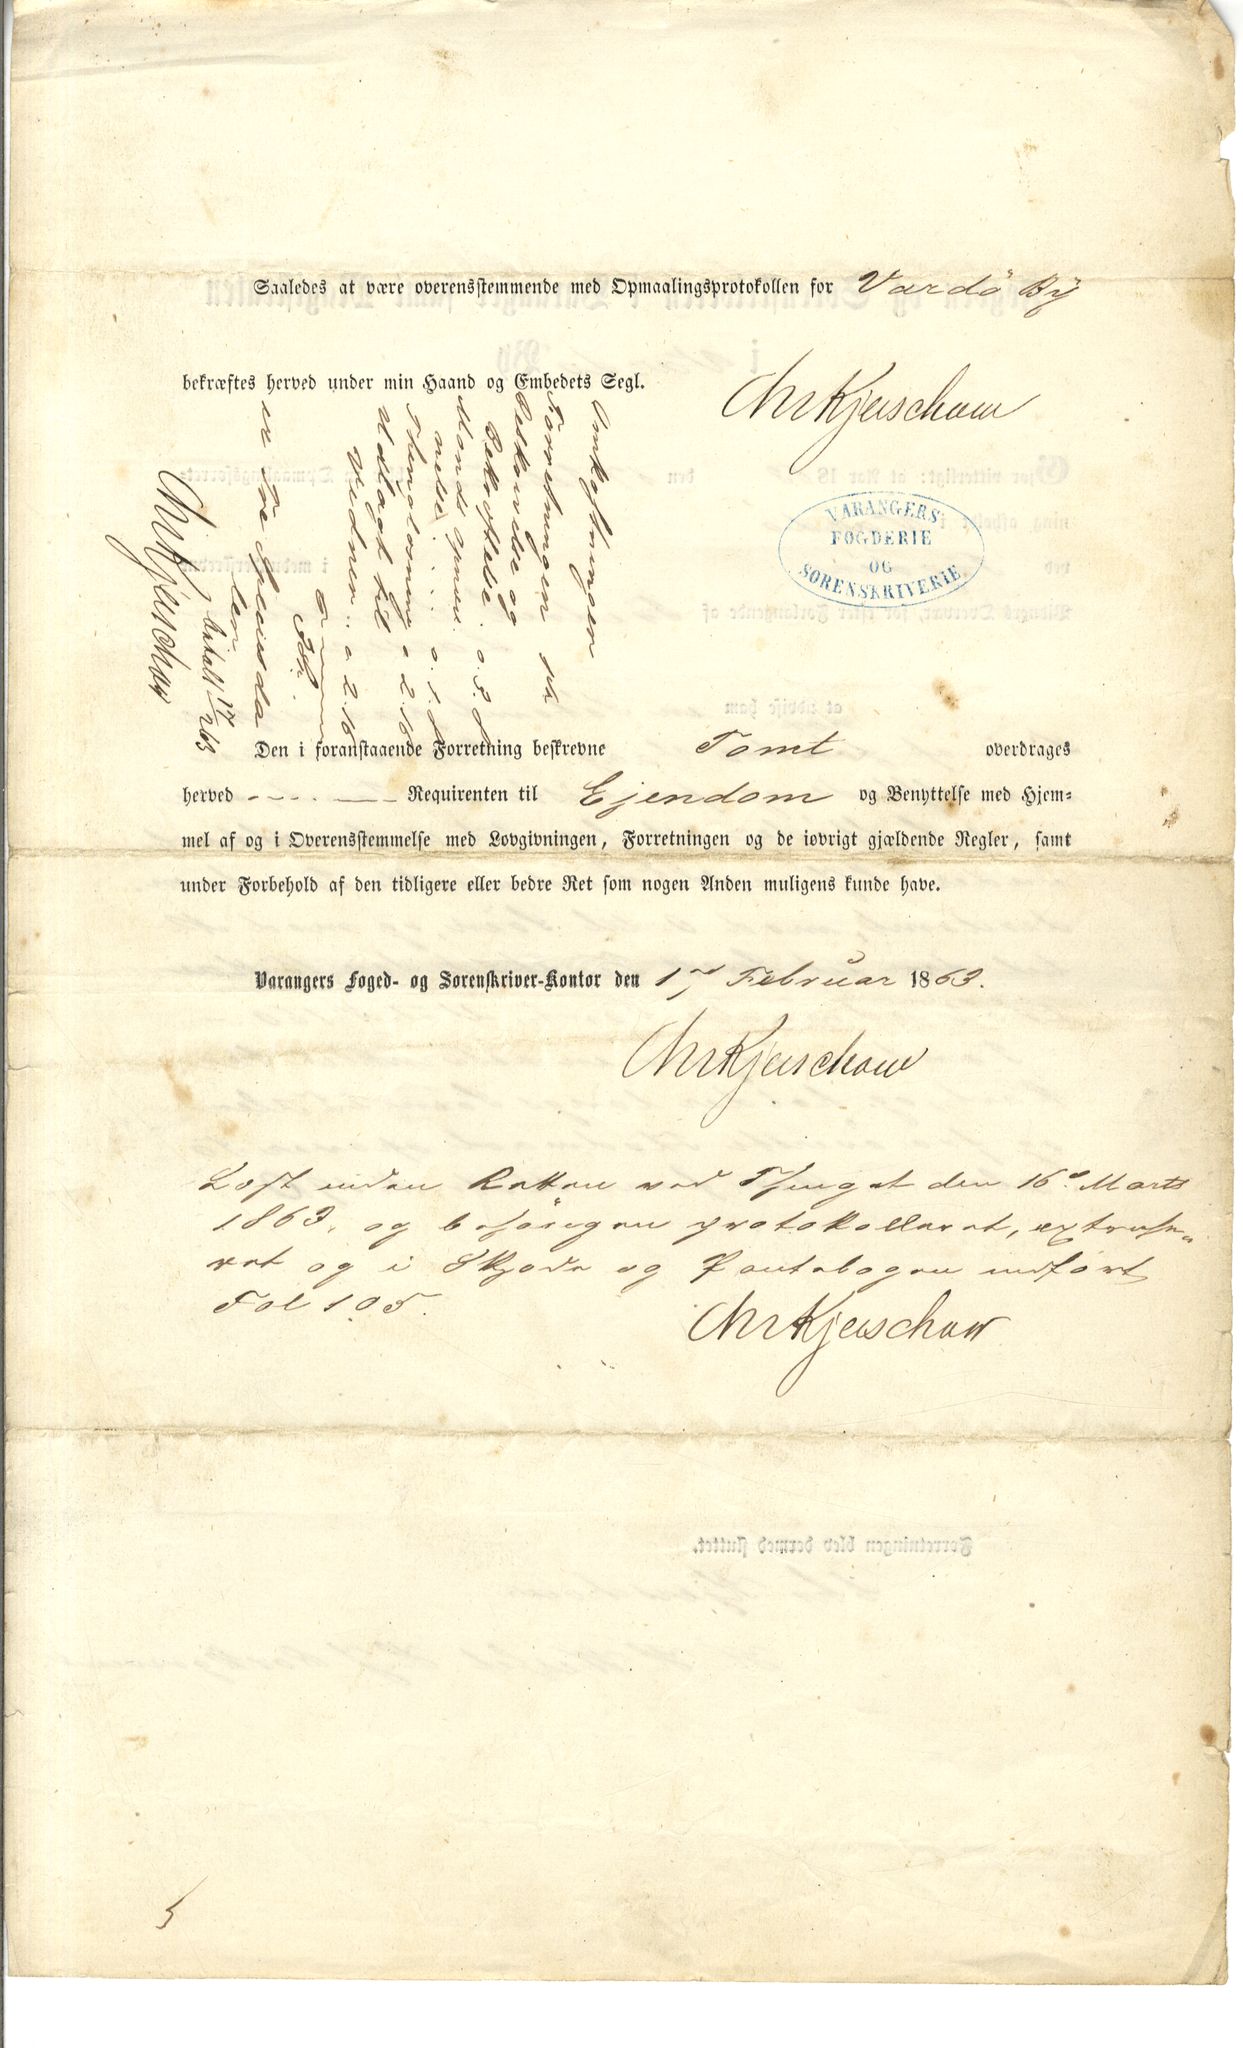 Saaledes at være overensstemmende med Opmaalingsprotokollen for Vardö By
bekræftes herved under min Haand og Embedets Segl.
Chr Kjerschow
VARANGERS
FOGDERIE
OG
SORENSKRIVERIE
Omkostninger
Forretningen
Beskrivelse og
Bekræftelse . o. 3. 8
Mands
nelse . . . o. 1. 8
Thinglæsning o 2. 16
Udlagt til
Vidner .. o 2. 16
er To Speciesda
ler
betalt 17/2 63
Chr Kjerschow
Den i foranstaaende Forretning beskrevne Tomt overdrages
herved — . — Requirenten til Ejendom og Benyttelse med Hjem=
mel af og i Overensstemmelse med Lovgivningen, Forretningen og de iøvrigt gjældende Regler, samt
under Forbehold af den tidligere eller bedre Ret som nogen Anden muligens kunde have.
Varangers Foged- og Sorenskriver-Kontor den 17 Februar 1863.
Chr Kjerschow
Læst inden Retten ved Thinget den 16d Marts
1863. og besörgen protokolleret, extrahe„
ret og i Skjøde og Pantebogen indført
Fol 105.
Chr Kjerschow